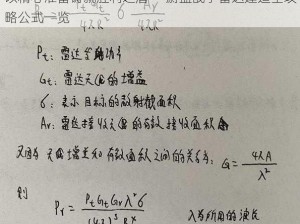 略公式一览
4πR² σ Ar/4πR²
Pt：雷达发射功率
Gt：雷达天线的增益
σ：表示目标的散射截面积
Ar：雷达接收天线的有效接收面积
又因为天线增益和有效面积之间的关系为：G = 4πA/λ²
则
Pr = PtGtGrλ²σ/(4π)³R⁴ 入为所用的波长